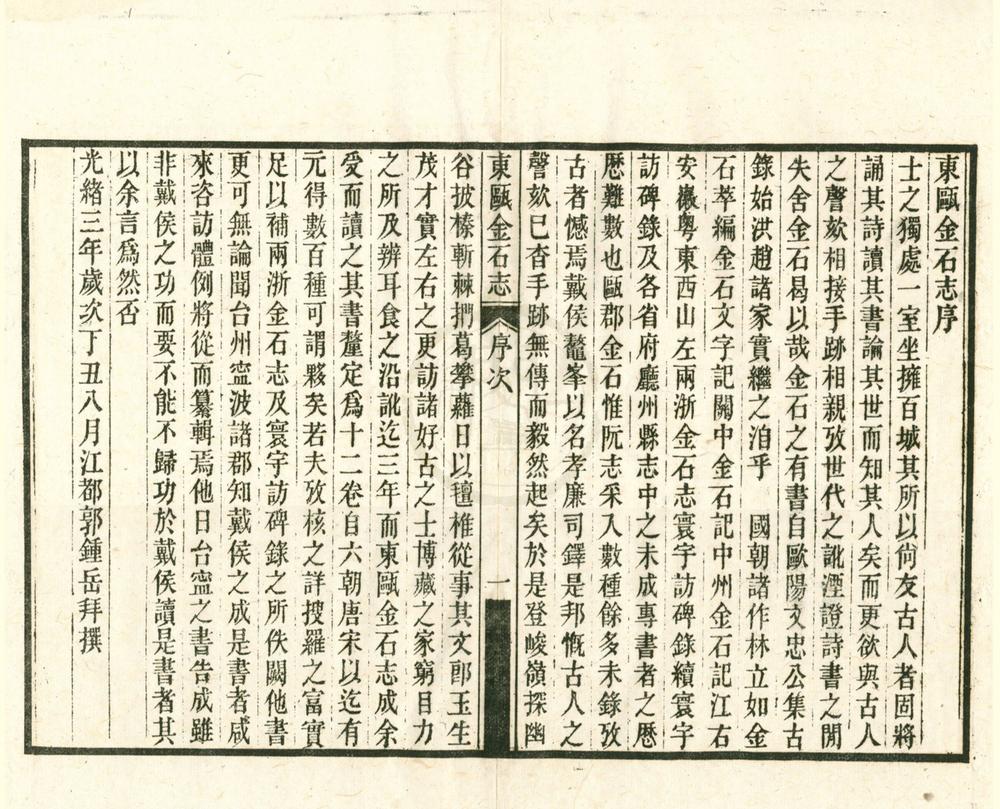 東甌金石志序
士之獨處一室坐擁百城其所以尙友古人者固將
誦其詩讀其書論其世而知其人矣而更欲與古人
之謦欬相接手跡相親攷世代之訛湮證詩書之閒
失舍金石曷以哉金石之有書自歐陽文忠公集古
錄始洪趙諸家實繼之洎乎　國朝諸作林立如金
石萃編金石文字記關中金石記中州金石記江右
安徽粵東西山左兩浙金石志寰宇訪碑錄續寰宇
訪碑錄及各省府廳州縣志中之未成專書者之歷
歷難數也甌郡金石惟阮志采入數種餘多未錄攷
古者憾焉戴侯鼇峯以名孝廉司鐸是邦慨古人之
謦欬已杳手跡無傳而毅然起矣於是登峻嶺探幽
東甌金石志
序次
一
谷披榛斬棘捫葛攀蘿日以氊椎從事其文郎玉生
茂才實左右之更訪諸好古之士博藏之家窮目力
之所及辨耳食之沿訛迄三年而東甌金石志成余
受而讀之其書釐定爲十二卷自六朝唐宋以迄有
元得數百種可謂夥矣若夫攷核之詳搜羅之富實
足以補兩浙金石志及寰宇訪碑錄之所佚闕他書
更可無論聞台州寍波諸郡知戴侯之成是書者咸
來咨訪體例將從而纂輯焉他日台寍之書告成雖
非戴侯之功而要不能不歸功於戴侯讀是書者其
以余言爲然否
光緒三年歲次丁丑八月江都郭鍾岳拜撰